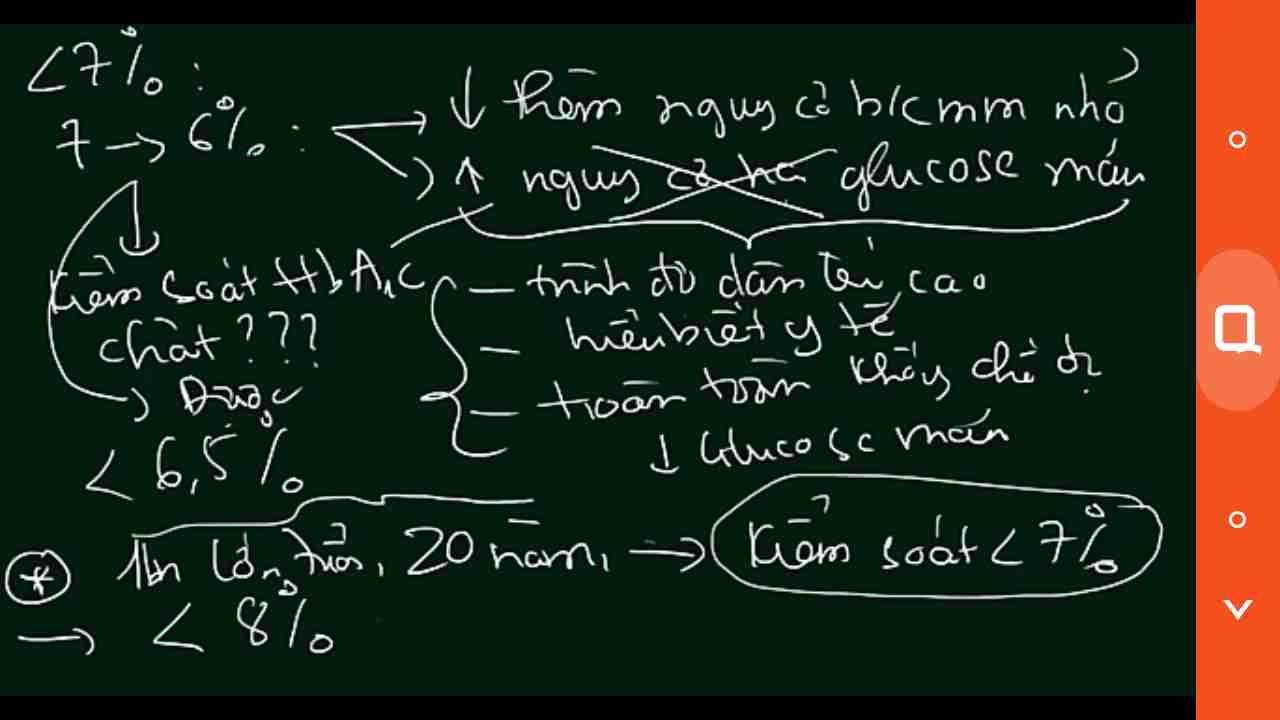 <7% :
7 → 6% :
↓ thêm nguy cơ b/c mm nhỏ
↑ nguy cơ hạ glucose máu
Kiểm soát HbA1c
chặt ???
→ Được
< 6,5%
- trình độ dân trí cao
- hiểu biết y tế
- hoàn toàn không chế đc
↓ Glucose máu
* lớn tuổi, 20 năm, → Kiểm soát < 7%
→ < 8%